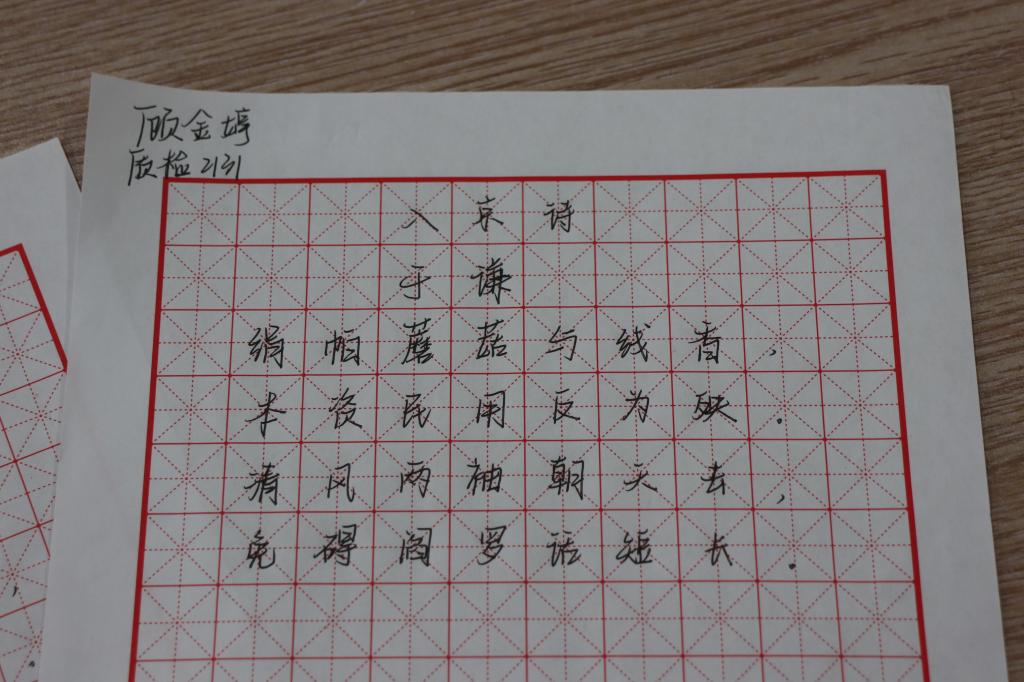 顾金婷
质检2131
入京诗
于谦
绢帕蘑菇与线香，
本资民用反为殃。
清风两袖朝天去，
免碍阎罗话短长。